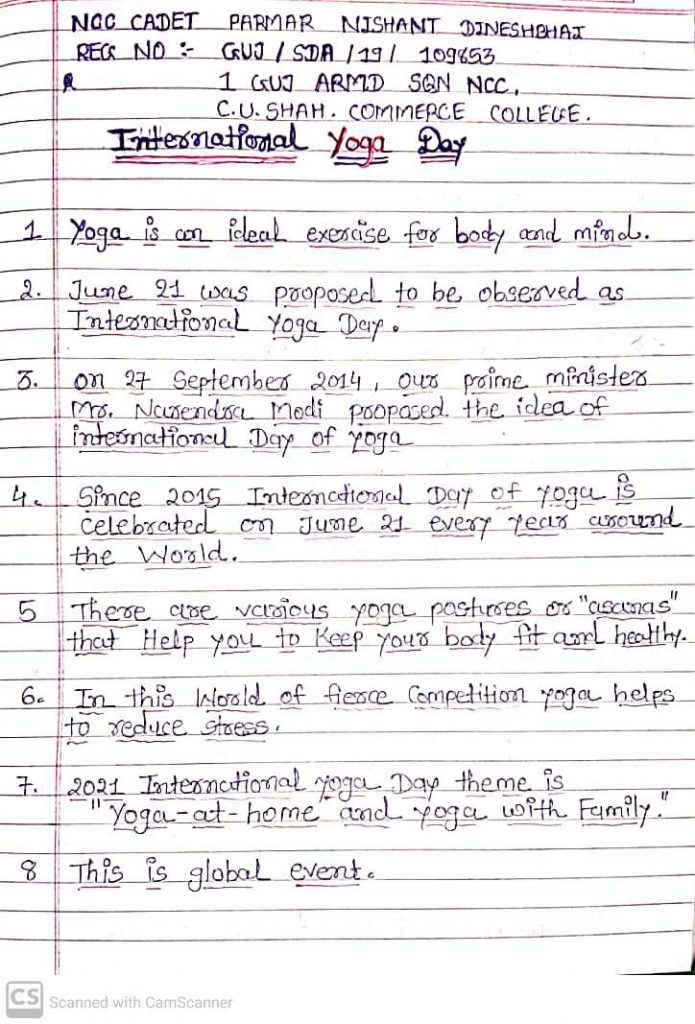 NCC CADET PARMAR NISHANT DINESHBHAI
REG NO :- GUJ / SDA / 19 / 109853
1 GUJ ARMD SQN NCC,
C.U. SHAH. COMMERCE COLLEGE.
International Yoga Day
1 Yoga is an ideal exercise for body and mind.
2. June 21 was proposed to be observed as
International Yoga Day.
3. on 27 September 2014, our prime minister
Mr. Narendra Modi proposed the idea of
international Day of yoga
4. Since 2015 International Day of yoga is
celebrated on June 21 every year around
the World.
5 There are various yoga postures or "asanas"
that Help you to Keep your body fit and healthy.
6. In this World of fierce Competition yoga helps
to reduce stress.
7. 2021 International yoga Day theme is
"Yoga-at-home and yoga with Family."
8 This is global event.
CS Scanned with CamScanner